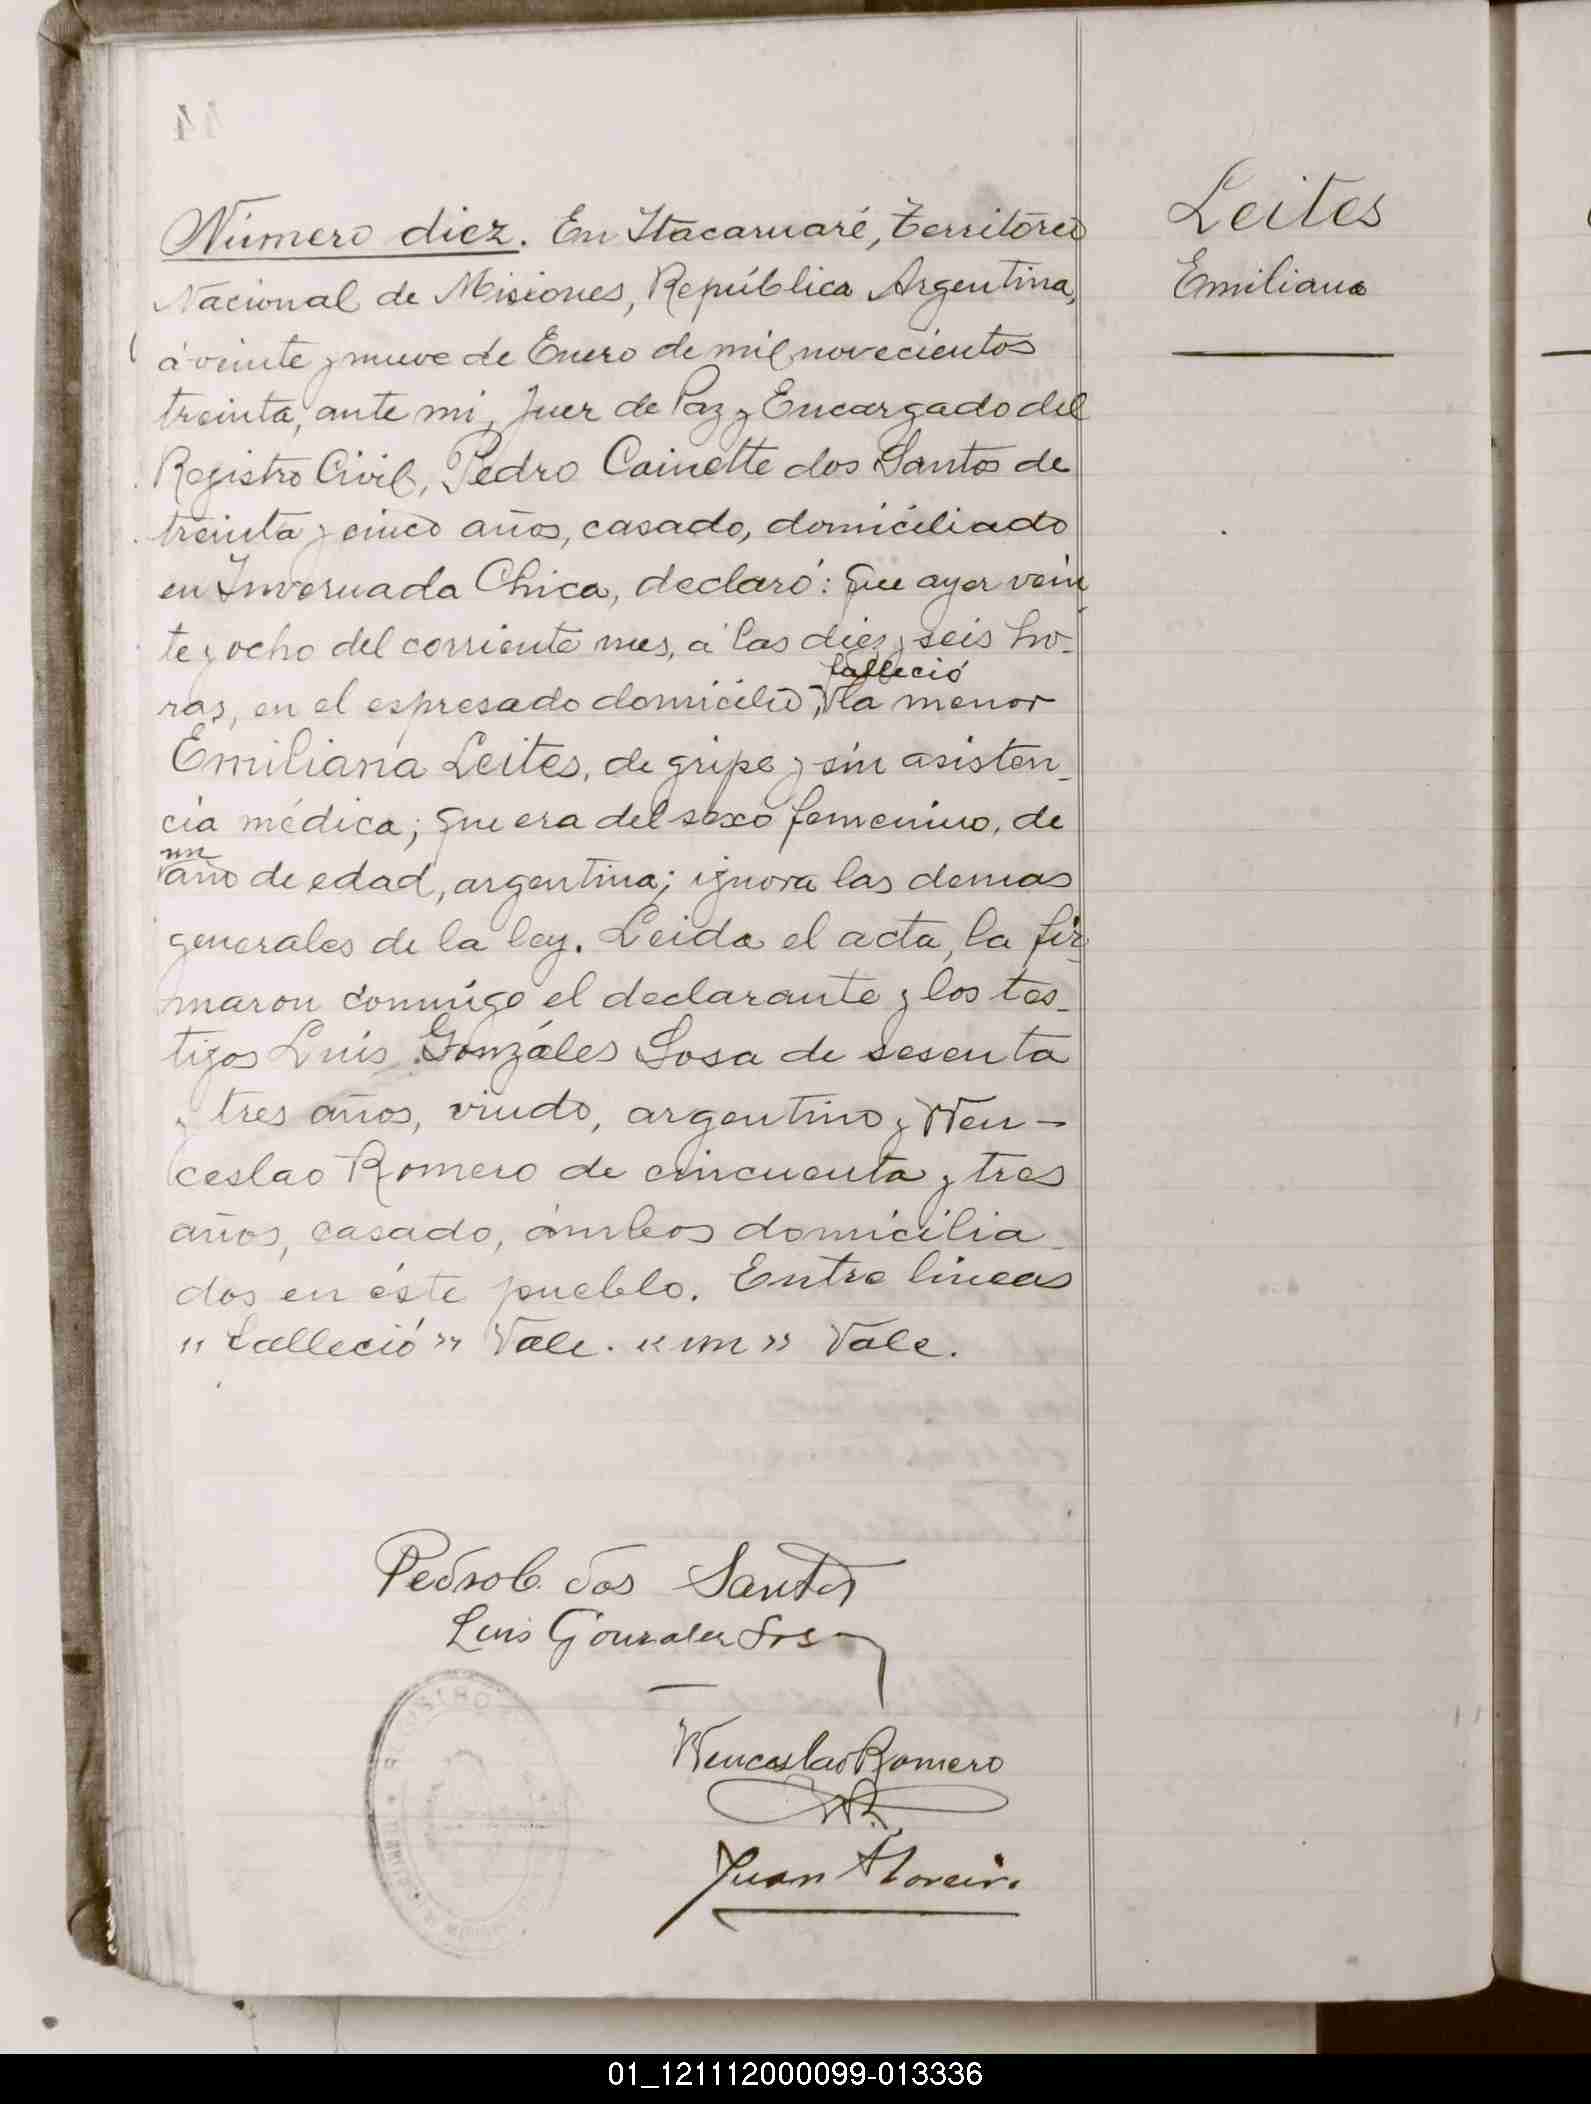 Número diez. En Itacaruaré, Território
Leites
Nacional de Misiones, República Argentina,
Emiliana
á veinte y nueve de Enero de mil novecientos
treinta, ante mi, Juez de Paz y Encargado del
Registro Civil, Pedro Cainette dos Santos de
treinta y cinco años, casado, domiciliado
en Invernada Chica, declaró: Que ayer vein
te y ocho del corriente mes, á las diez y seis ho-
falleció
ras, en el espresado domicilio, la menor
Emiliana Leites, de gripe y sin asisten-
cia médica; que era del sexo femenino, de
un
año de edad, argentina; ignora las demas
generales de la ley. Leida el acta, la fir-
maron conmigo el declarante y los tes-
tigos Luis Gonzáles Sosa de sesenta
y tres años, viudo, argentino y Wen-
ceslao Romero de cincuenta y tres
años, casado, ámbos domicilia-
dos en éste pueblo. Entre lineas
"falleció" Vale. "un" Vale.
Pedro C. dos Santos
Luis Gonzales Sosa
Wenceslao Romero
WR
Juan Moreira
REGISTRO
01_121112000099-013336